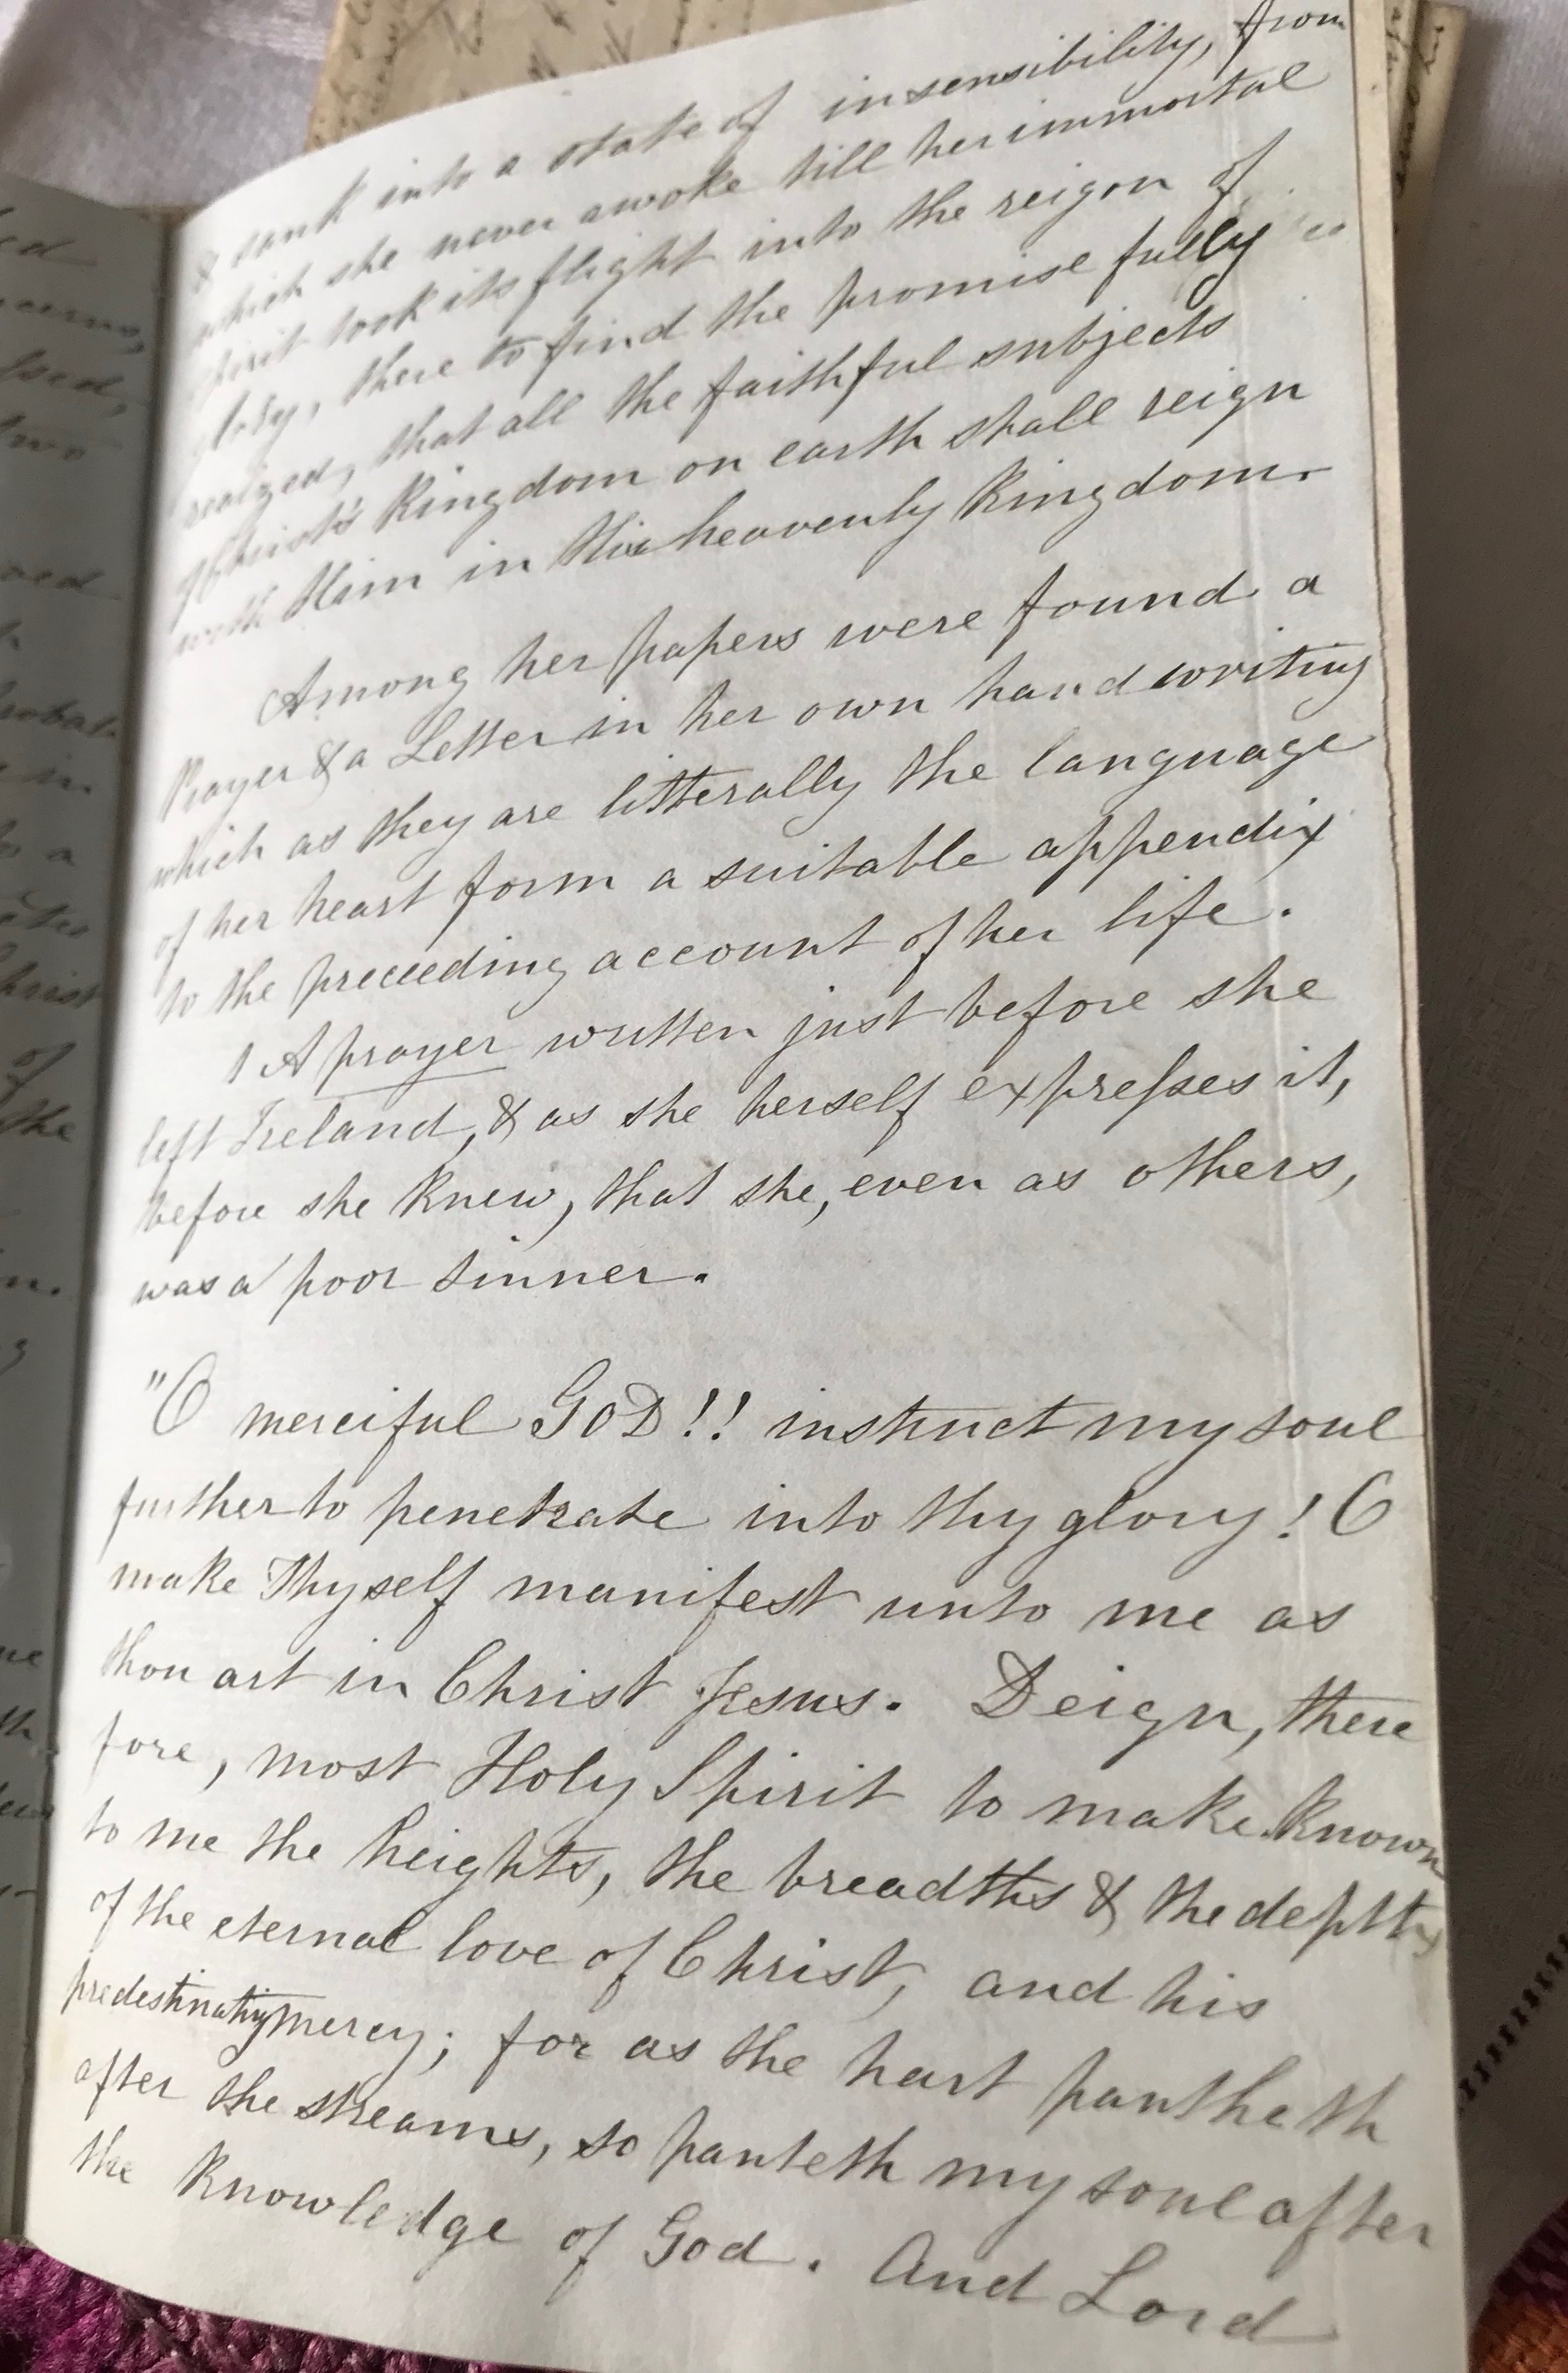 & sank into a state of insensibility, from
which she never awoke till her immortal
spirit took its flight into the reigon of
glory, there to find the promise fully
reaized, that all the faithful subjects
of Christ's Kingdom on earth shall reign
with Him in His heavenly Kingdom.
Among her papers were found a
Prayer & a Letter in her own handwriting
which as they are litterally the language
of her heart form a suitable appendix
to the preceeding account of her life.
1 A prayer written just before she
left Ireland, & as she herself expresses it,
before she knew, that she, even as others,
was a poor sinner.
"O merciful GOD!! instruct my soul
further to penetrate into thy glory! O
make Thyself manifest unto me as
thou art in Christ Jesus. Deign, there
fore, most Holy Spirit to make known
to me the heights, the breadths & the depths
of the eternal love of Christ, and his
predestinatig mercy; for as the hart pantheth
after the streams, so panteth my soul after
the knowledge of God. And Lord